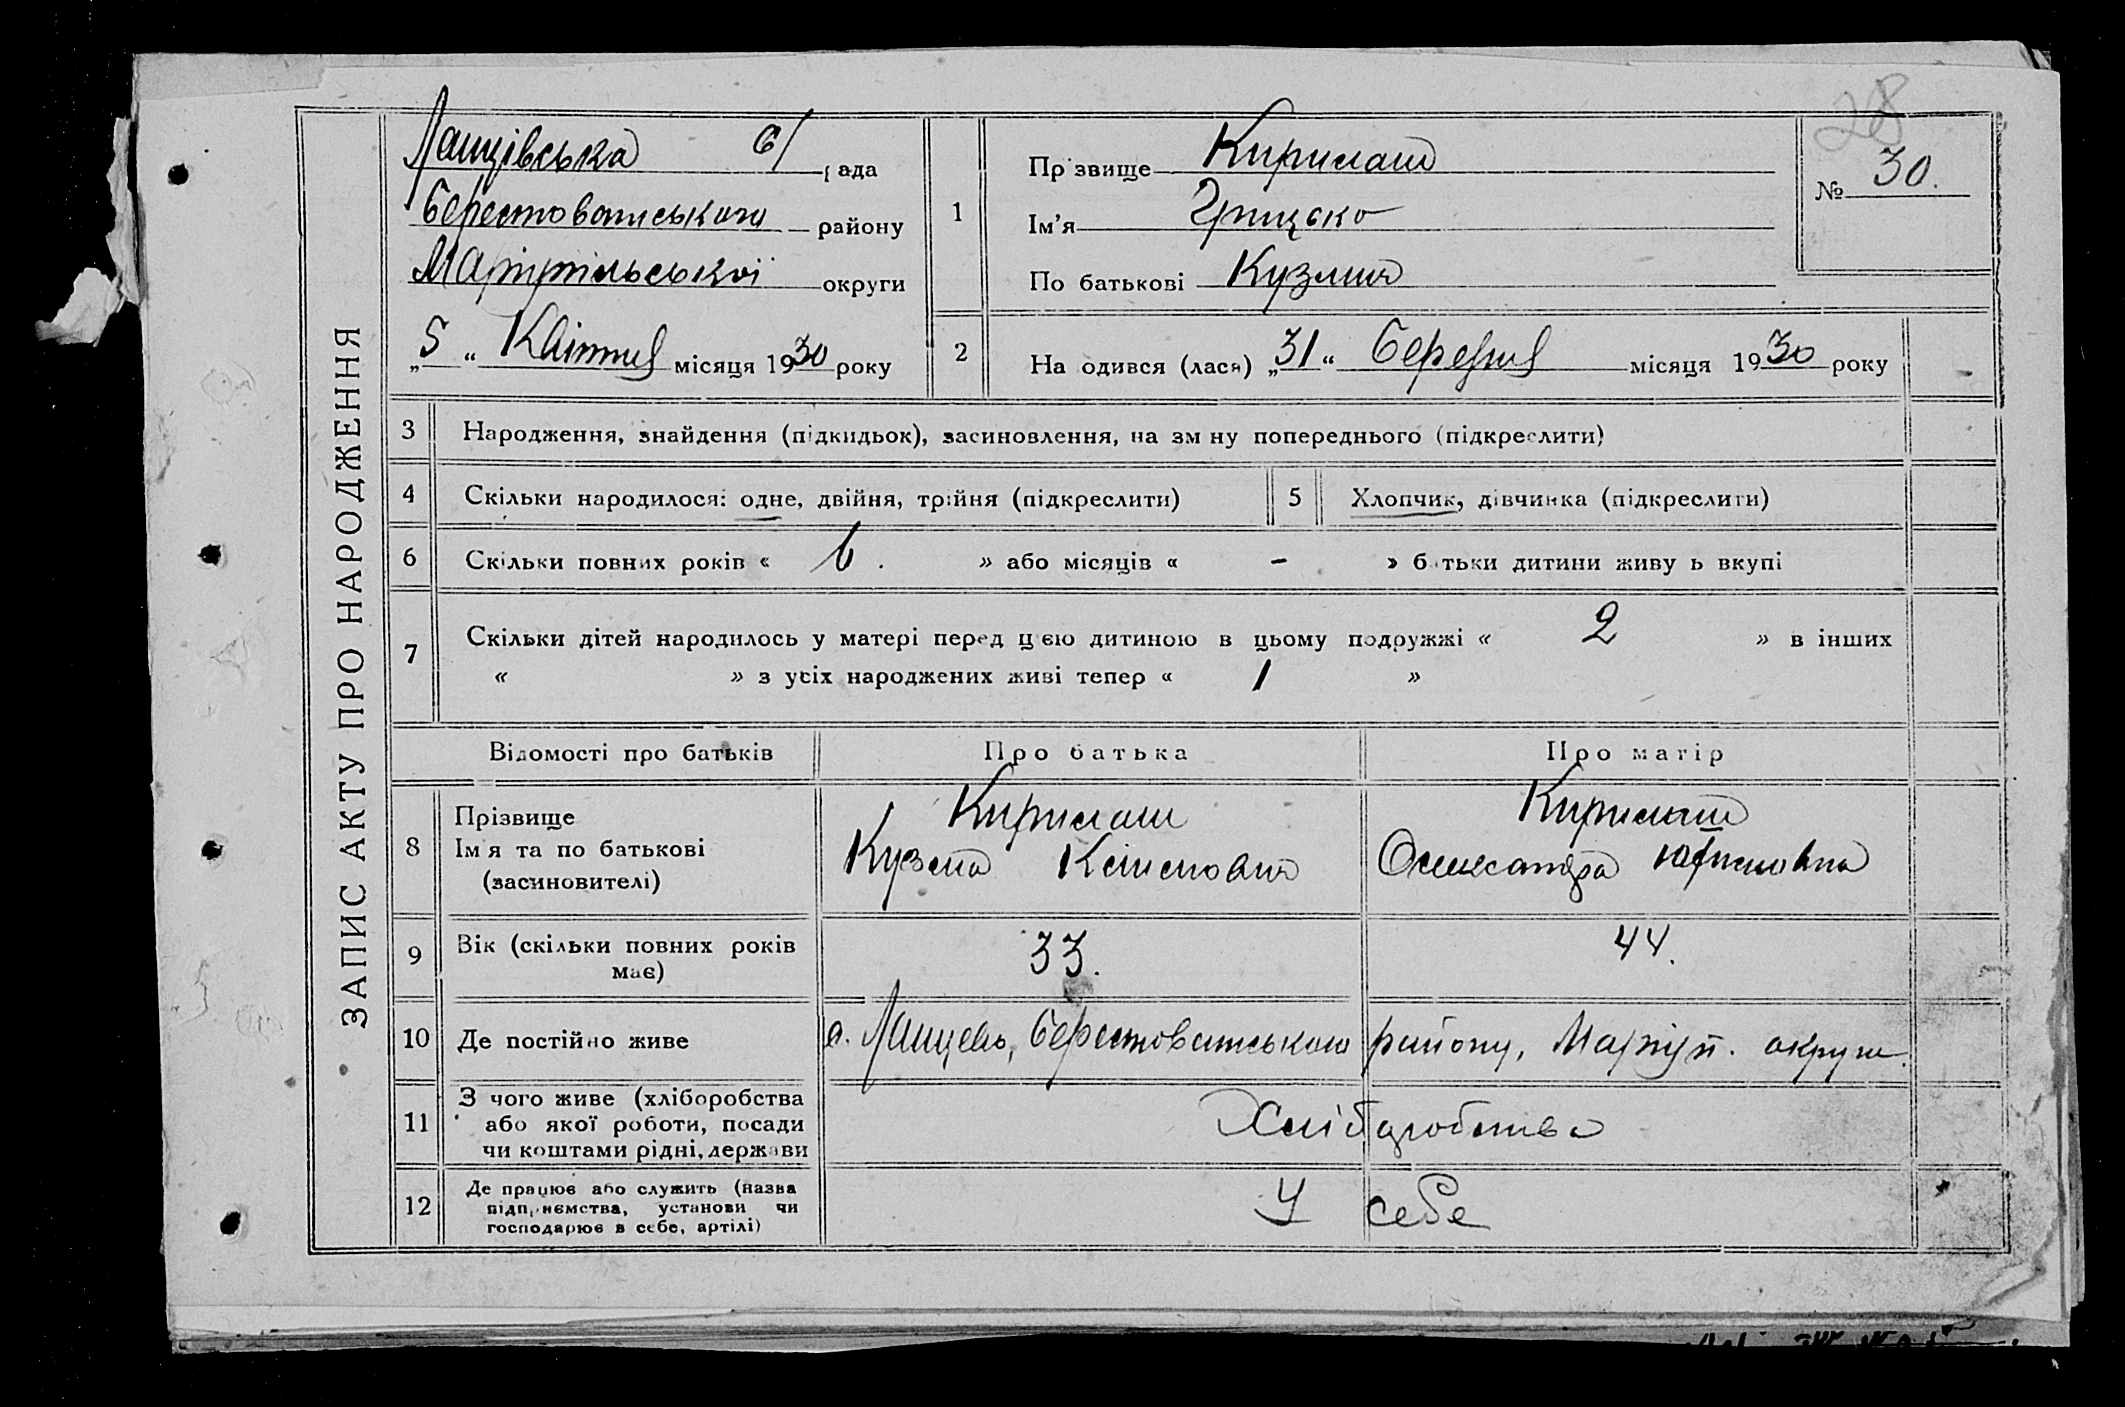 28
ЗАПИС АКТУ ПРО НАРОДЖЕННЯ
Ланцівська с/ рада
Берестоватського району
Маріупільської округи
„5“ Квітня місяця 1930 року
1
Прізвище Кирилаш
Ім'я Грицько
По батькові Кузмич
№ 30.
2
Народився (лася) „31“ Березня місяця 1930 року
3 Народження, знайдення (підкидьок), засиновлення, на зміну попереднього (підкреслити)
4 Скільки народилося: одне, двійня, трійня (підкреслити) 5 Хлопчик, дівчинка (підкреслити)
6 Скільки повних років « 6. » або місяців « - » батьки дитини живуть вкупі
7 Скільки дітей народилось у матері перед цією дитиною в цьому подружжі « 2 » в інших
« » з усіх народжених живі тепер « 1 »
Відомості про батьків Про батька Про матір
8 Прізвище Кирилаш Кирилаш
Ім'я та по батькові Кузма Олександра
(засиновителі)
9 Вік (скільки повних років має) 33. 44.
10 Де постійно живе с. Ланцево, Берестоватського району, Маріуп. округи
11 З чого живе (хліборобства
або якої роботи, посади
чи коштами рідні, держави Хліборобства
12 Де працює або служить (назва
підприємства, установи чи
господарює в себе, артілі) У себе